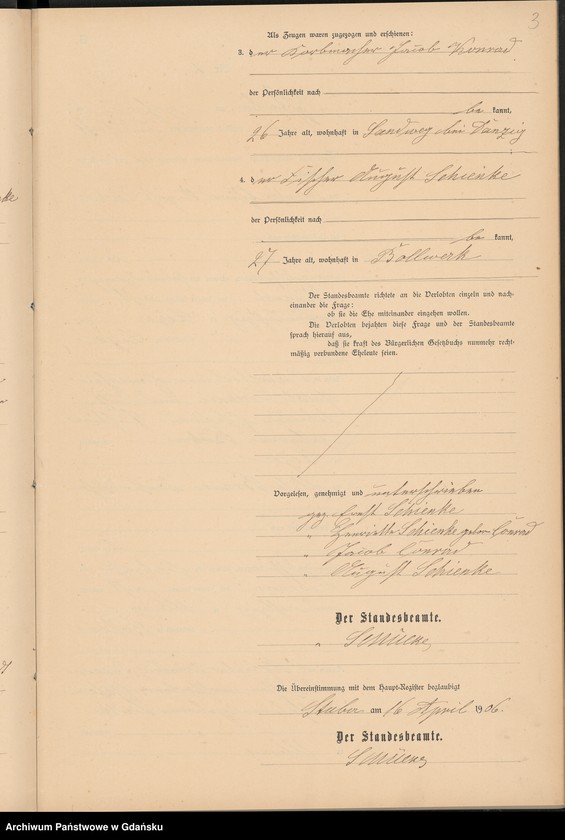 3
Als Zeugen waren zugezogen und erschienen:
3. der Korbmacher Jacob Konrad
der Persönlichkeit nach
be kannt,
26 Jahre alt, wohnhaft in Sandweg bei Danzig
4. der Fischer August Schienke
der Persönlichkeit nach
be kannt,
27 Jahre alt, wohnhaft in Bollwerk
Der Standesbeamte richtete an die Verlobten einzeln und nach-
einander die Frage:
ob sie die Ehe miteinander eingehen wollen.
Die Verlobten bejahten diese Frage und der Standesbeamte
sprach hierauf aus,
daß sie kraft des Bürgerlichen Gesetzbuchs nunmehr recht-
mäßig verbundene Eheleute seien.
Vorgelesen, genehmigt und unterschrieben
gez. Ernst Schienke
" Henriette Schienke geboren Conrad
" Jacob Conrad
" August Schienke
Der Standesbeamte.
"
Die Übereinstimmung mit dem Haupt-Register beglaubigt
am 16 April 1906.
Der Standesbeamte.
Archiwum Państwowe w Gdańsku